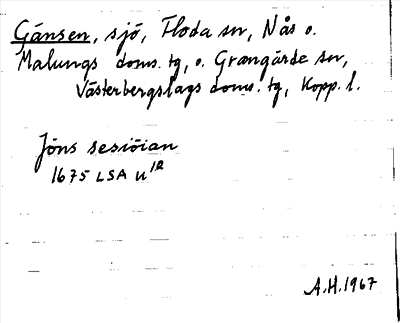 Gänsen, sjö, Floda sn, Nås o.
Malungs doms. tg, o. Grangärde sn,
Västerbergslags doms. tg, Kopp. l.
Jöns sesiöian
1675 LSA U 12
A.H. 1967